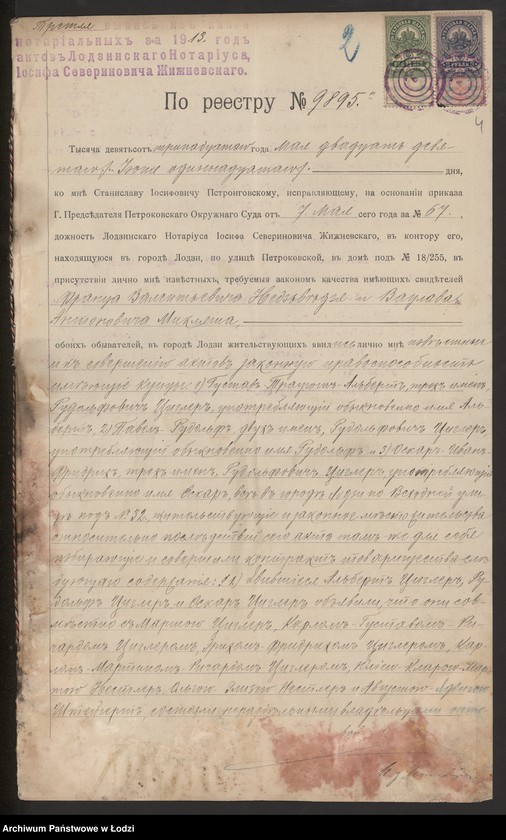 нотаріальныхъ за 1913. годъ
актовъ Лодзинскаго Нотаріуса,
Іосифа Севериновича Жижневскаго.
2
По реестру № 9895.
4
Тысяча девятьсотъ тринадцатаго года Мая двадцать девя-
таго /Іюня одиннадцатаго/ дня,
ко мнѣ Станиславу Іосифовичу Петронговскому, исправляющему, на основаніи приказа
Г. Предсѣдателя Петроковскаго Окружнаго Суда отъ 7 Мая сего года за № 67.,
должность Лодзинскаго Нотаріуса Іосифа Севериновича Жижневскаго, въ контору его,
находящуюся въ городѣ Лодзи, по улицѣ Петроковской, въ домѣ подъ № 18/255, въ
присутствіи лично мнѣ извѣстныхъ, требуемыя закономъ качества имѣющихъ свидѣтелей
Франца Валентьевича и Вацлава
Антоновича Микляша,
обоихъ обывателей, въ городѣ Лодзи жительствующихъ явились лично мнѣ извѣстные
и къ совершенію актовъ законную правоспособность
имѣющіе купцы: 1) Густавъ Альбертъ, трехъ именъ,
Рудольфовичъ Циглеръ, употребляющій обыкновенно имя Аль-
бертъ, 2) Павелъ Рудольфъ, двухъ именъ, Рудольфовичъ Циглеръ,
употребляющій обыкновенно имя Рудольфъ и 3) Оскаръ Иванъ
Фридрихъ, трехъ именъ, Рудольфовичъ Циглеръ, употребляющій
обыкновенно имя Оскаръ, всѣ въ городѣ Лодзи по Входной ули-
цѣ подъ № 32, жительствующіе и законное мѣсто жительства
относительно послѣдствій сего акта тамъ же для себя
избирающіе и совершили контрактъ товарищества слѣ-
дующаго содержанія: § 1) Явившіеся Альбертъ Циглеръ, Ру-
дольфъ Циглеръ и Оскаръ Циглеръ объявили, что они сов-
мѣстно съ Циглеръ, Карломъ-Густавомъ-Ри-
хардомъ Циглеромъ, Фридрихомъ Циглеромъ, Кар-
ломъ-Мартиномъ-Рихардомъ Циглеромъ, Кларою-Мар-
тою Нестлеръ, Ольгою Элизою Нестлеръ и Августою-
состоятъ нераздѣльными владѣльцами
Archiwum Państwowe w Łodzi